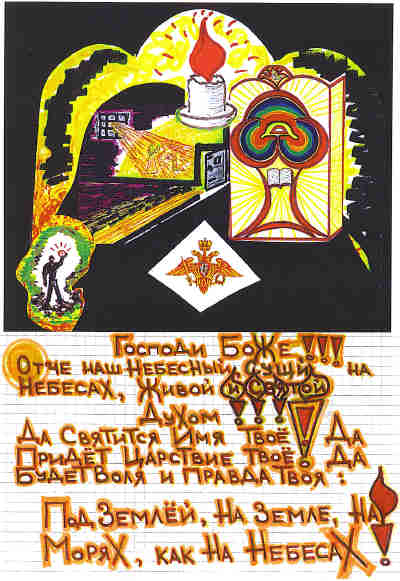 Господи Боже!!!
Отче наш Небесный, сущий на
Небесах, Живой и Святой
Духом!!!!
Да Святится Имя Твоё! Да
Придёт Царствие Твоё! Да
Будет Воля и Правда Твоя:
Под Землёй, на Земле, на
Морях, как на Небесах!